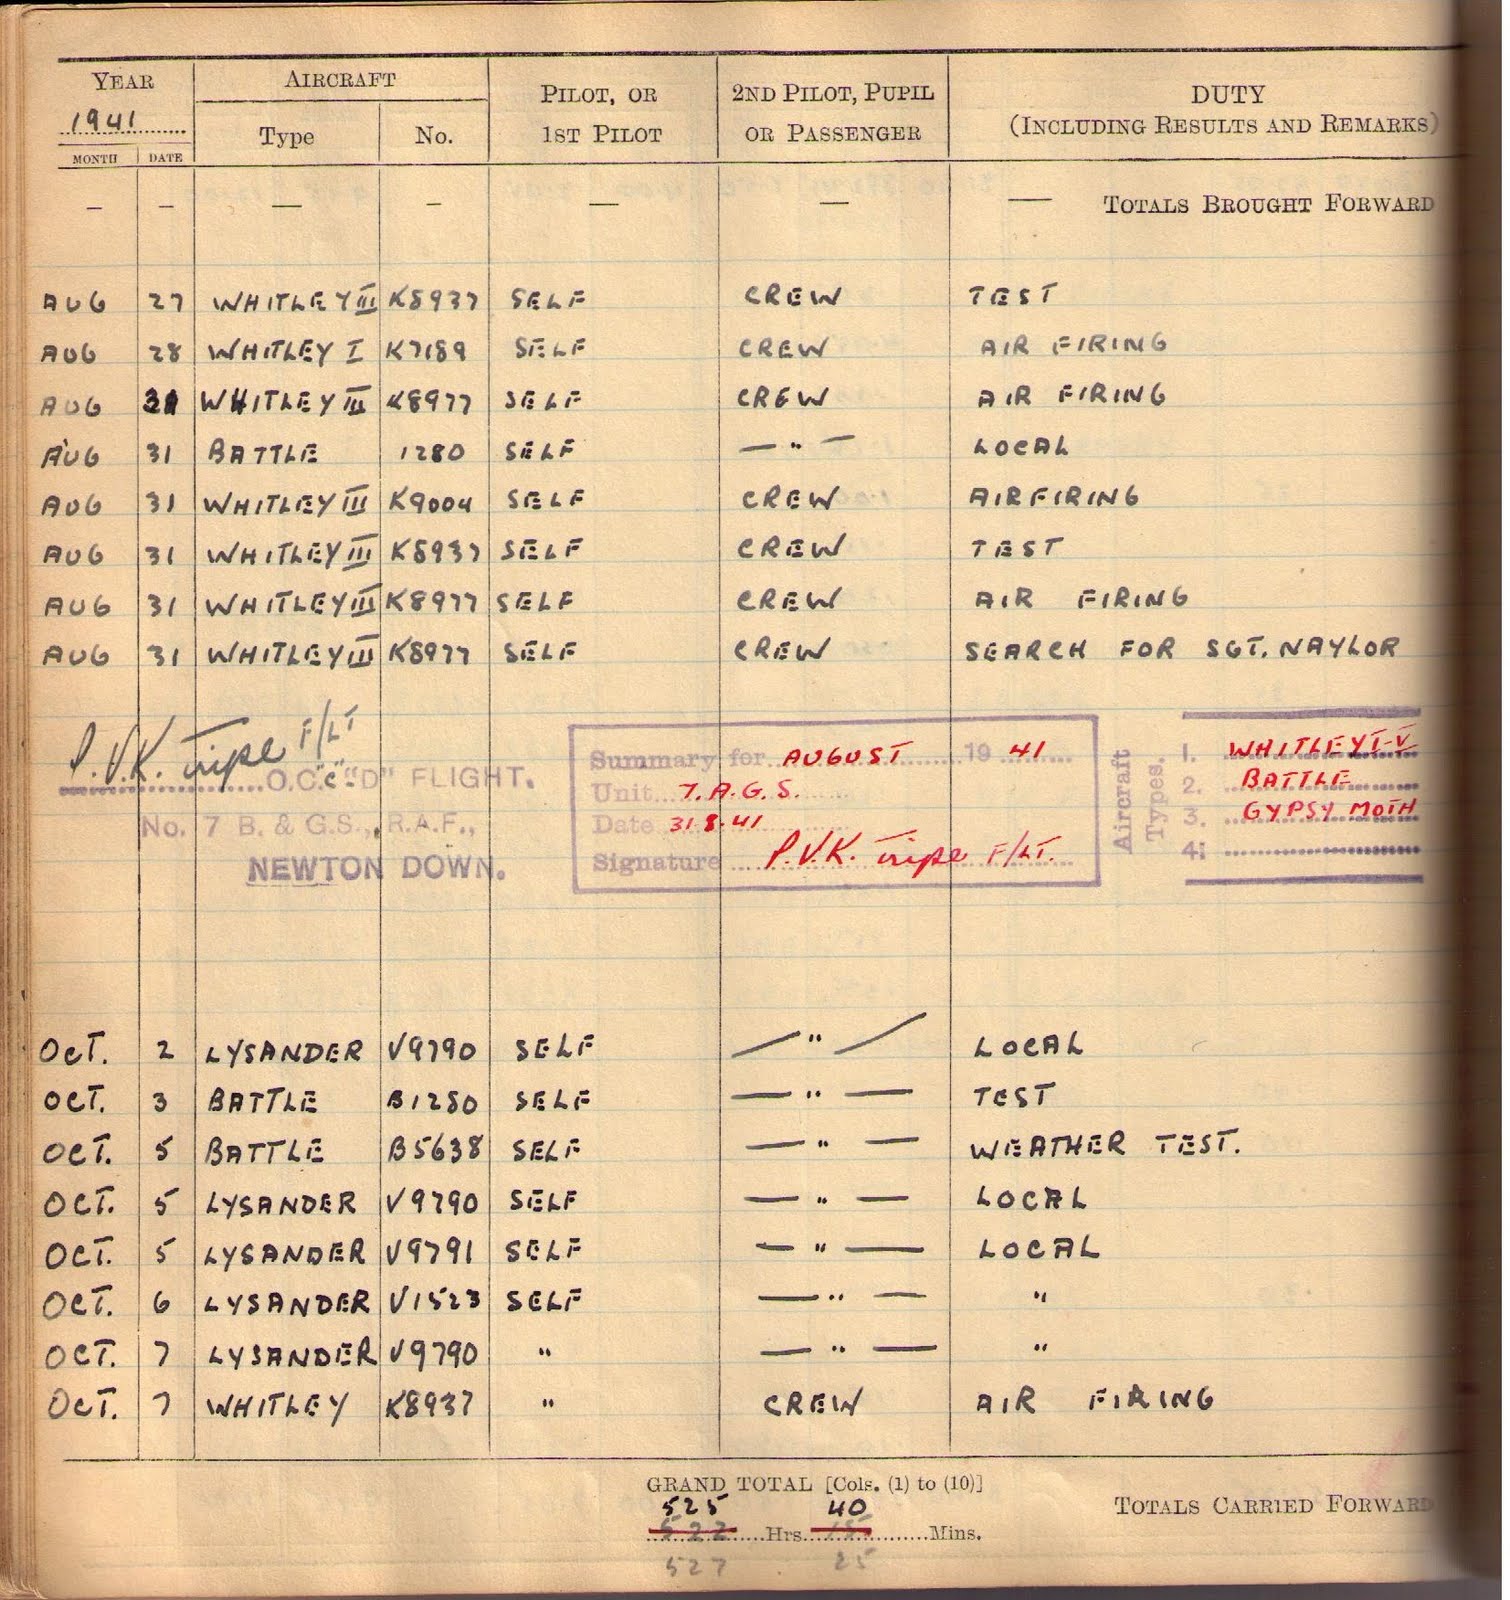 YEAR AIRCRAFT PILOT, OR 2ND PILOT, PUPIL DUTY
1941 Type No. 1ST PILOT OR PASSENGER (INCLUDING RESULTS AND REMARKS)
MONTH DATE
— — — — — — — TOTALS BROUGHT FORWARD
AUG 27 WHITLEY III K8937 SELF CREW TEST
AUG 28 WHITLEY I K7189 SELF CREW AIR FIRING
AUG 31 WHITLEY III K8977 SELF CREW AIR FIRING
AUG 31 BATTLE 1280 SELF — " — LOCAL
AUG 31 WHITLEY III K9004 SELF CREW AIRFIRING
AUG 31 WHITLEY III K8937 SELF CREW TEST
AUG 31 WHITLEY III K8977 SELF CREW AIR FIRING
AUG 31 WHITLEY III K8977 SELF CREW SEARCH FOR SGT. NAYLOR
P.V.K. Tripe F/LT
O.C. "C" "D" FLIGHT.
No. 7 B. & G.S., R.A.F.,
NEWTON DOWN.
Summary for AUGUST 1941
Unit 7. A.G.S.
Date 31.8.41
Signature P.V.K. Tripe F/LT.
Aircraft Types.
1. WHITLEY I-V
2. BATTLE
3. GYPSY MOTH
4:
OCT. 2 LYSANDER V9790 SELF — " — LOCAL
OCT. 3 BATTLE B1280 SELF — " — TEST
OCT. 5 BATTLE B5638 SELF — " — WEATHER TEST.
OCT. 5 LYSANDER V9790 SELF — " — LOCAL
OCT. 5 LYSANDER V9791 SELF — " — LOCAL
OCT. 6 LYSANDER V1523 SELF — " — "
OCT. 7 LYSANDER V9790 " — " — "
OCT. 7 WHITLEY K8937 " CREW AIR FIRING
GRAND TOTAL [Cols. (1) to (10)]
525 40
522 Hrs. 15 Mins. TOTALS CARRIED FORWARD
527 25